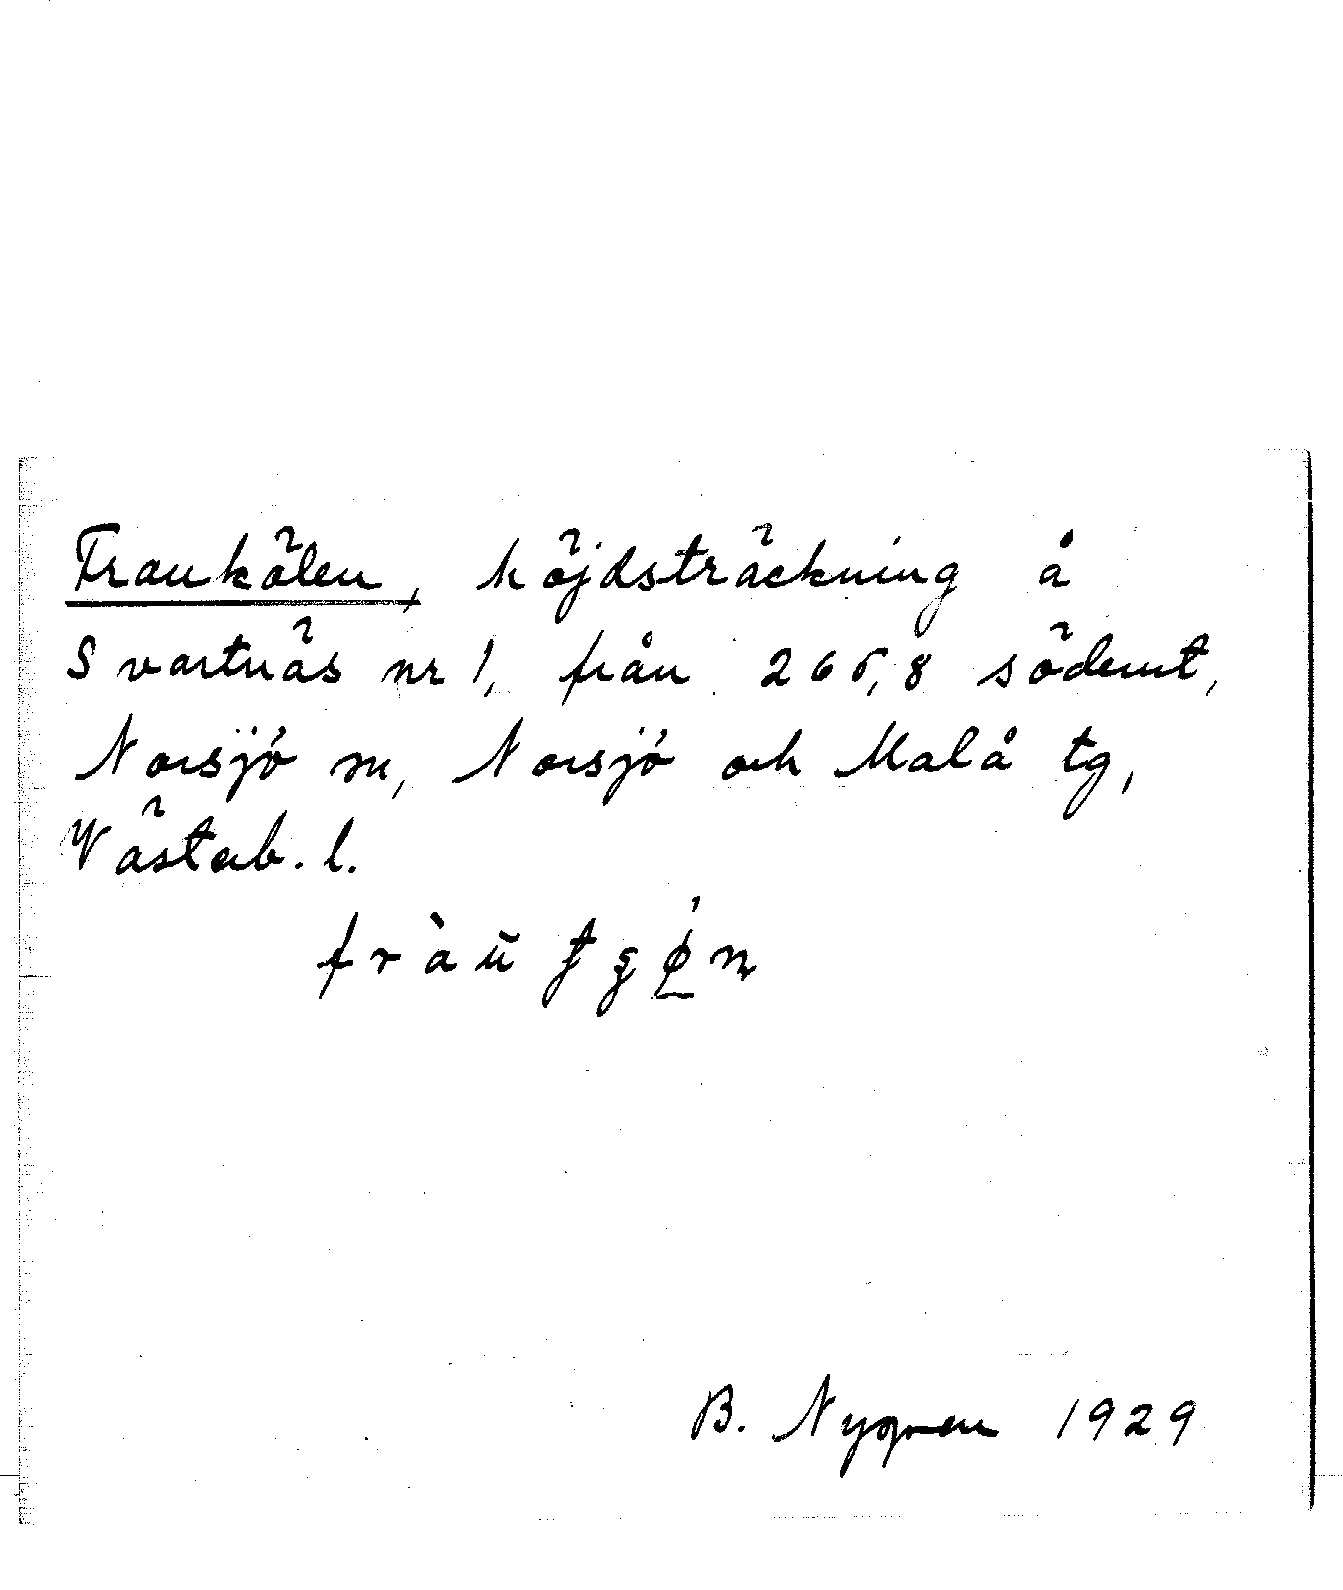 Fraukölen, höjdsträckning å
Svartnäs nr 1, från 265,8 söderut,
Norsjö sn, Norsjö och Malå tg,
Västerb. l.
B. Nygren 1929